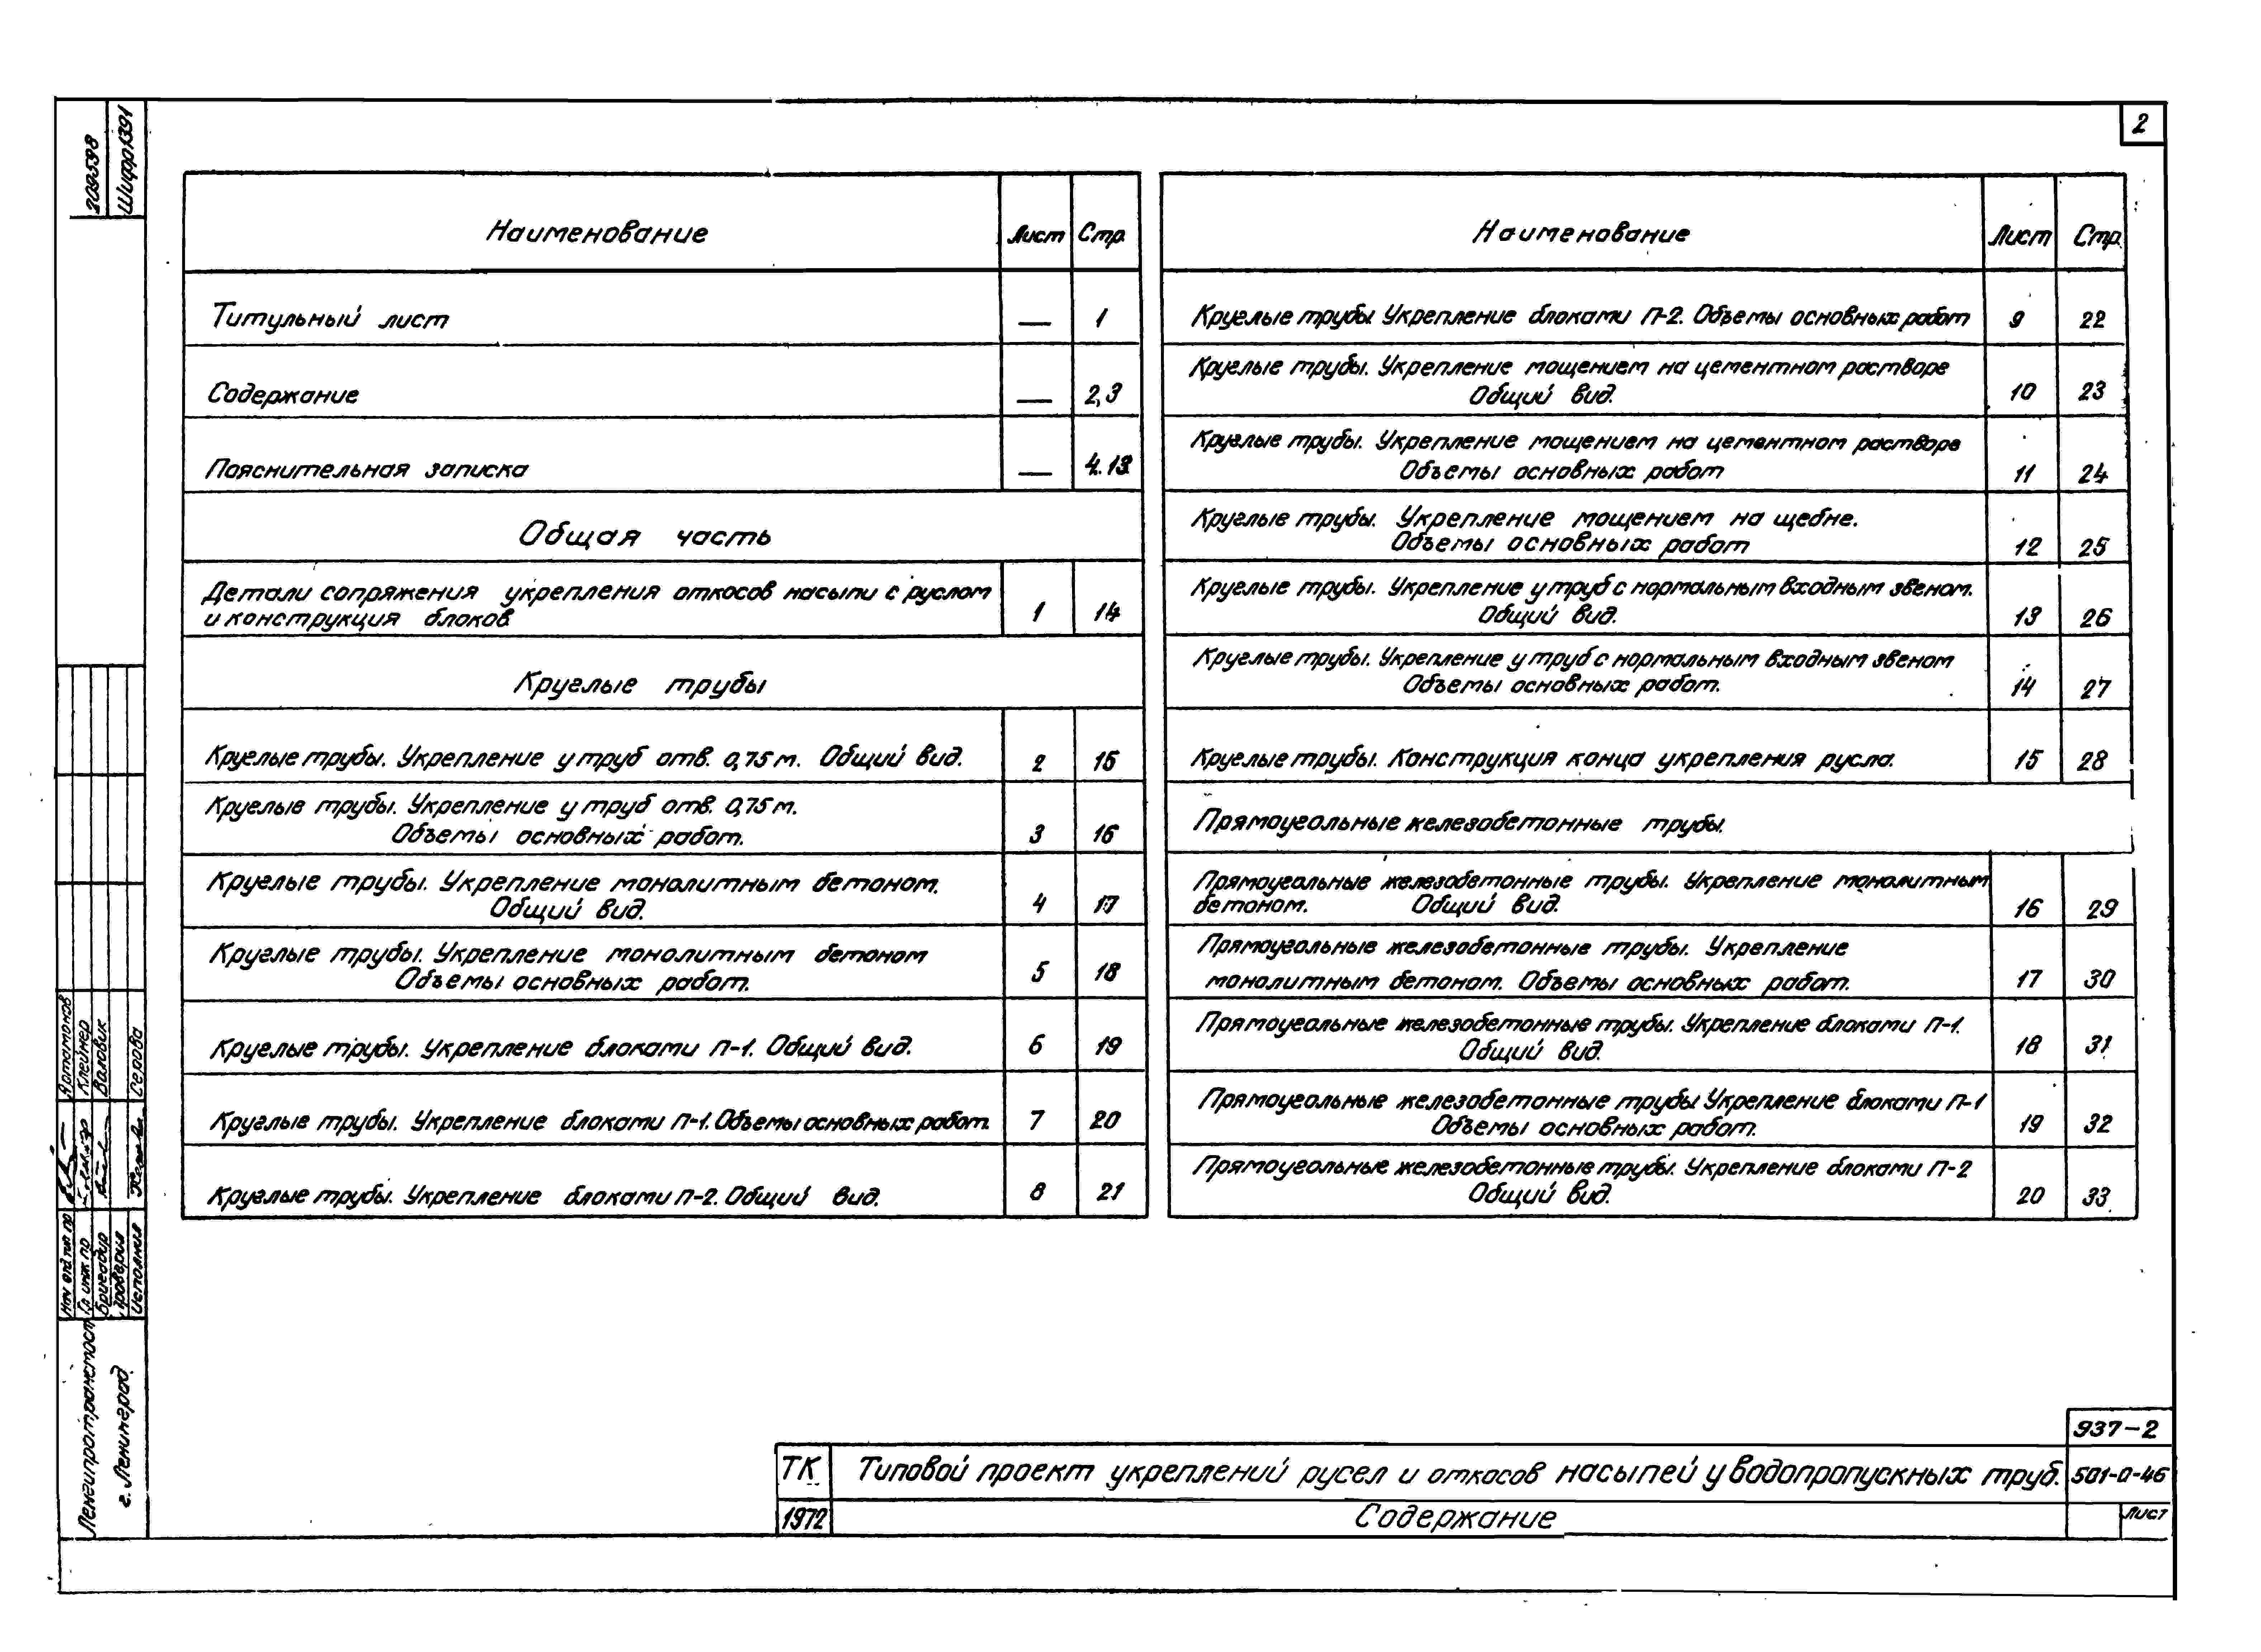 2
209598
Шифр 1391
Наименование Лист Стр.
Титульный лист — 1
Содержание — 2,3
Пояснительная записка — 4.13
Общая часть
Детали сопряжения укрепления откосов насыпи с руслом
и конструкция блоков 1 14
Круглые трубы
Круглые трубы. Укрепление у труб отв. 0,75 м. Общий вид. 2 15
Круглые трубы. Укрепление у труб отв. 0,75 м.
Объемы основных работ. 3 16
Круглые трубы. Укрепление монолитным бетоном.
Общий вид. 4 17
Круглые трубы. Укрепление монолитным бетоном
Объемы основных работ. 5 18
Круглые трубы. Укрепление блоками П-1. Общий вид. 6 19
Круглые трубы. Укрепление блоками П-1. Объемы основных работ. 7 20
Круглые трубы. Укрепление блоками П-2. Общий вид. 8 21
Наименование Лист Стр.
Круглые трубы Укрепление блоками П-2. Объемы основных работ 9 22
Круглые трубы. Укрепление мощением на цементном растворе
Общий вид. 10 23
Круглые трубы. Укрепление мощением на цементном растворе
Объемы основных работ 11 24
Круглые трубы. Укрепление мощением на щебне.
Объемы основных работ 12 25
Круглые трубы. Укрепление у труб с нормальным входным звеном.
Общий вид. 13 26
Круглые трубы. Укрепление у труб с нормальным входным звеном
Объемы основных работ. 14 27
Круглые трубы. Конструкция конца укрепления русла. 15 28
Прямоугольные железобетонные трубы.
Прямоугольные железобетонные трубы. Укрепление монолитным
бетоном. Общий вид. 16 29
Прямоугольные железобетонные трубы. Укрепление
монолитным бетоном. Объемы основных работ. 17 30
Прямоугольные железобетонные трубы. Укрепление блоками П-1.
Общий вид. 18 31
Прямоугольные железобетонные трубы Укрепление блоками П-1
Объемы основных работ. 19 32
Прямоугольные железобетонные трубы. Укрепление блоками П-2
Общий вид. 20 33
Нач отд тип пр Артамонов
Гл инж пр Клейнер
Бригадир Валовик
Проверил
Исполнил Серова
Ленгипротрансмост
г. Ленинград.
937-2
ТК Типовой проект укреплений русел и откосов насыпей у водопропускных труб. 501-0-46
1972 Содержание Лист